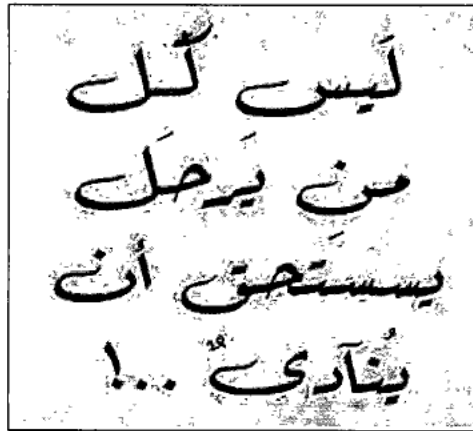 لَيس كُل
من يَرحَل
يستَحق أن
يُنآدى ...!